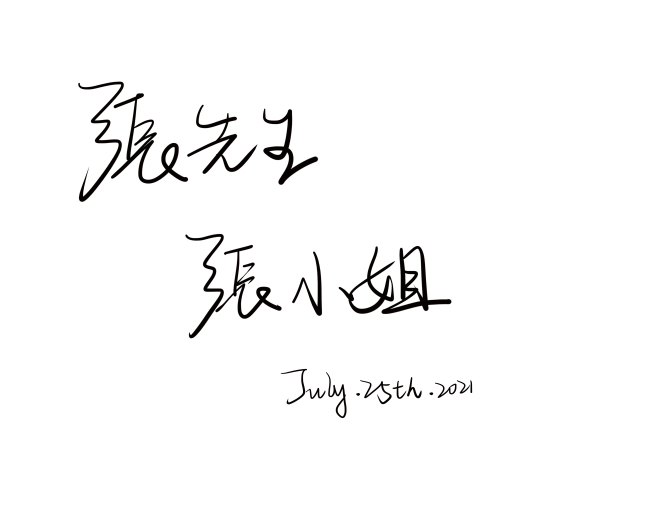 張先生
張小姐
July.25th.2021